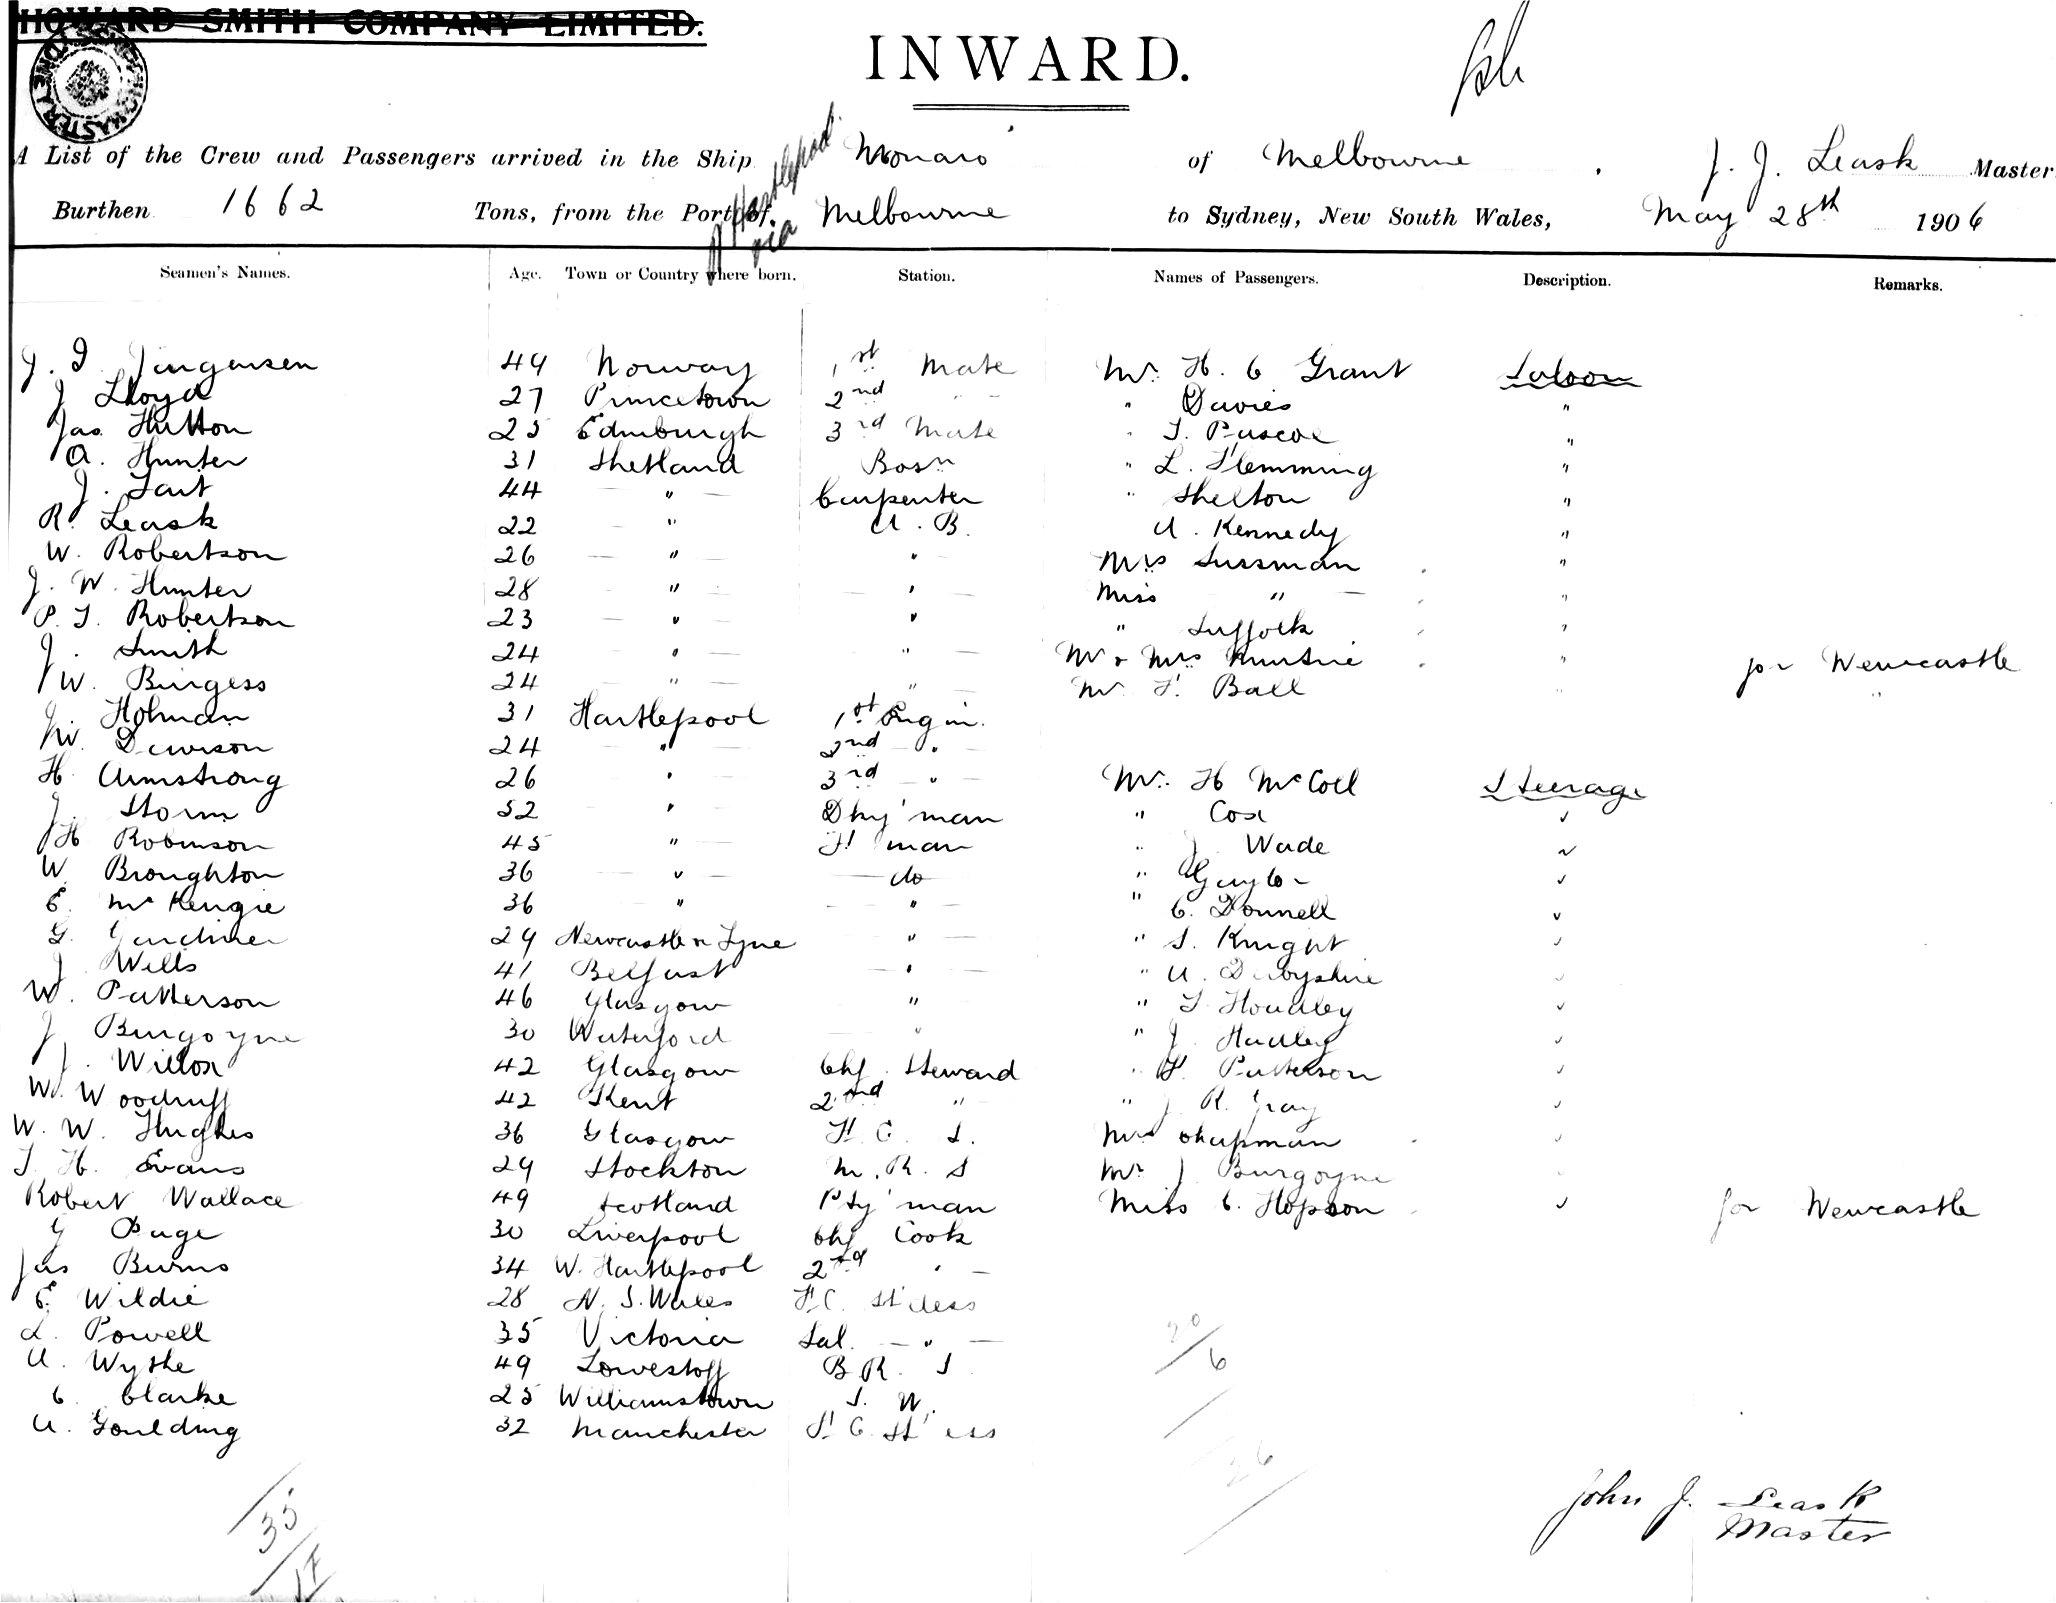 HOWARD SMITH COMPANY LIMITED.
INWARD.
A List of the Crew and Passengers arrived in the Ship Monaro of Melbourne, J. J. Leask Master
Burthen 1662 Tons, from the Port of W Hartlepool via Melbourne to Sydney, New South Wales, May 28th 1906
Seamen's Names. Age. Town or Country where born. Station. Names of Passengers. Description. Remarks.
J. I. Jorgensen 49 Norway 1st Mate Mr. H. C Grant Saloon
J Lloyd 27 Princetown 2nd " Davies "
Jas Hutton 25 Edinburgh 3rd Mate " T. Pascoe "
A. Hunter 31 Shetland Bosn " L. Flemming "
J. Tait 44 " Carpenter " Shelton "
R. Leask 22 " A. B. A. Kennedy "
W. Robertson 26 " " Mrs Sussman "
J. W. Hunter 28 " " Miss " "
P. T. Robertson 23 " " " Suffolk "
J. Smith 24 " " Mr & Mrs " for Newcastle
W. Burgess 24 " " Mr F. Ball " "
J. Holman 31 Hartlepool 1st Engin.
W. Dawson 24 " 2nd "
H. Armstrong 26 " 3rd " Mr. H McColl Steerage
J. Storm 52 " Dky'man " Cox ✓
H Robinson 45 " F'man " J Wade ✓
W. Broughton 36 " do " ✓
E. McKenzie 36 " " " C. Donnell ✓
G. Gardiner 29 Newcastle n Tyne " " S. Knight ✓
J Wills 41 Belfast " " A. Derbyshire ✓
W. Patterson 46 Glasgow " " T. Hoadley ✓
J Burgoyne 30 Waterford " " J. Hadley ✓
J. Willox 42 Glasgow Chf. Steward " F. Patterson ✓
W. Woodruff 42 Kent 2nd " " J R. Gray ✓
W. W. Hughes 36 Glasgow F. C. S. Mrs Chapman ✓
T. H. Evans 29 Stockton M. R. S Mr. J Burgoyne
Robert Wallace 49 Scotland Pty'man Miss C. Hopson ✓ for Newcastle
G Page 30 Liverpool Chf Cook
Jas Burns 34 W. Hartlepool 2nd "
E. Wildie 28 N. S. Wales F.C. St'dess
L. Powell 35 Victoria Sal. "
A. Wythe 49 Lowestoff B R. S
C. Clarke 25 Williamstown S. W.
A. Goulding 32 Manchester F. C. St'ess
20/6
26
35
17
John J. Leask
Master